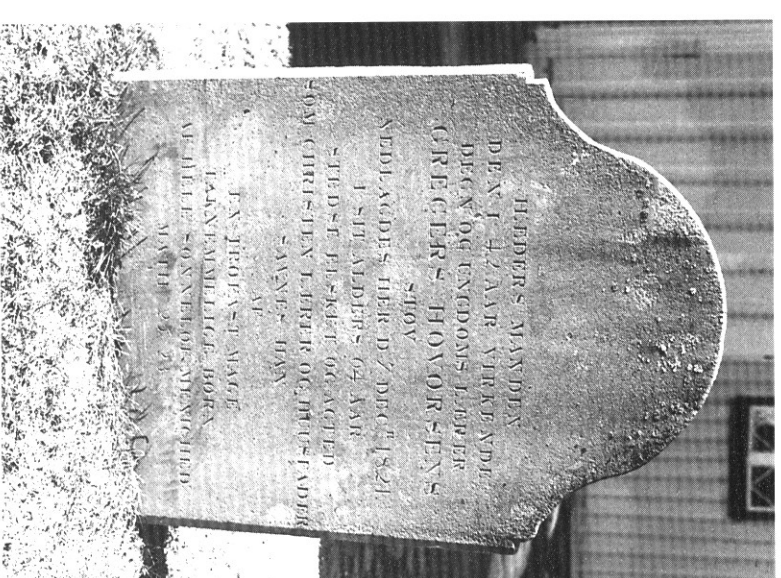 HEDERS MANDEN
DEN I 42 AAR VIRKENDE
DEGN OG UNGDOMS LÆRER
GREGERS HOVORSENS
STØV
NEDLAGDES HER D. DECBR 1821
I SIT ALDERS 64 AAR
STEDSE ELSKET OG AGTED
SOM CHRISTEN LÆRER OG HUUSFADER
SAVNES HAN
AF
EN TROFAST MAGE
TAKNEMMELIGE BØRN
AF HELE SOGNETS MENIGHED
MATH 25